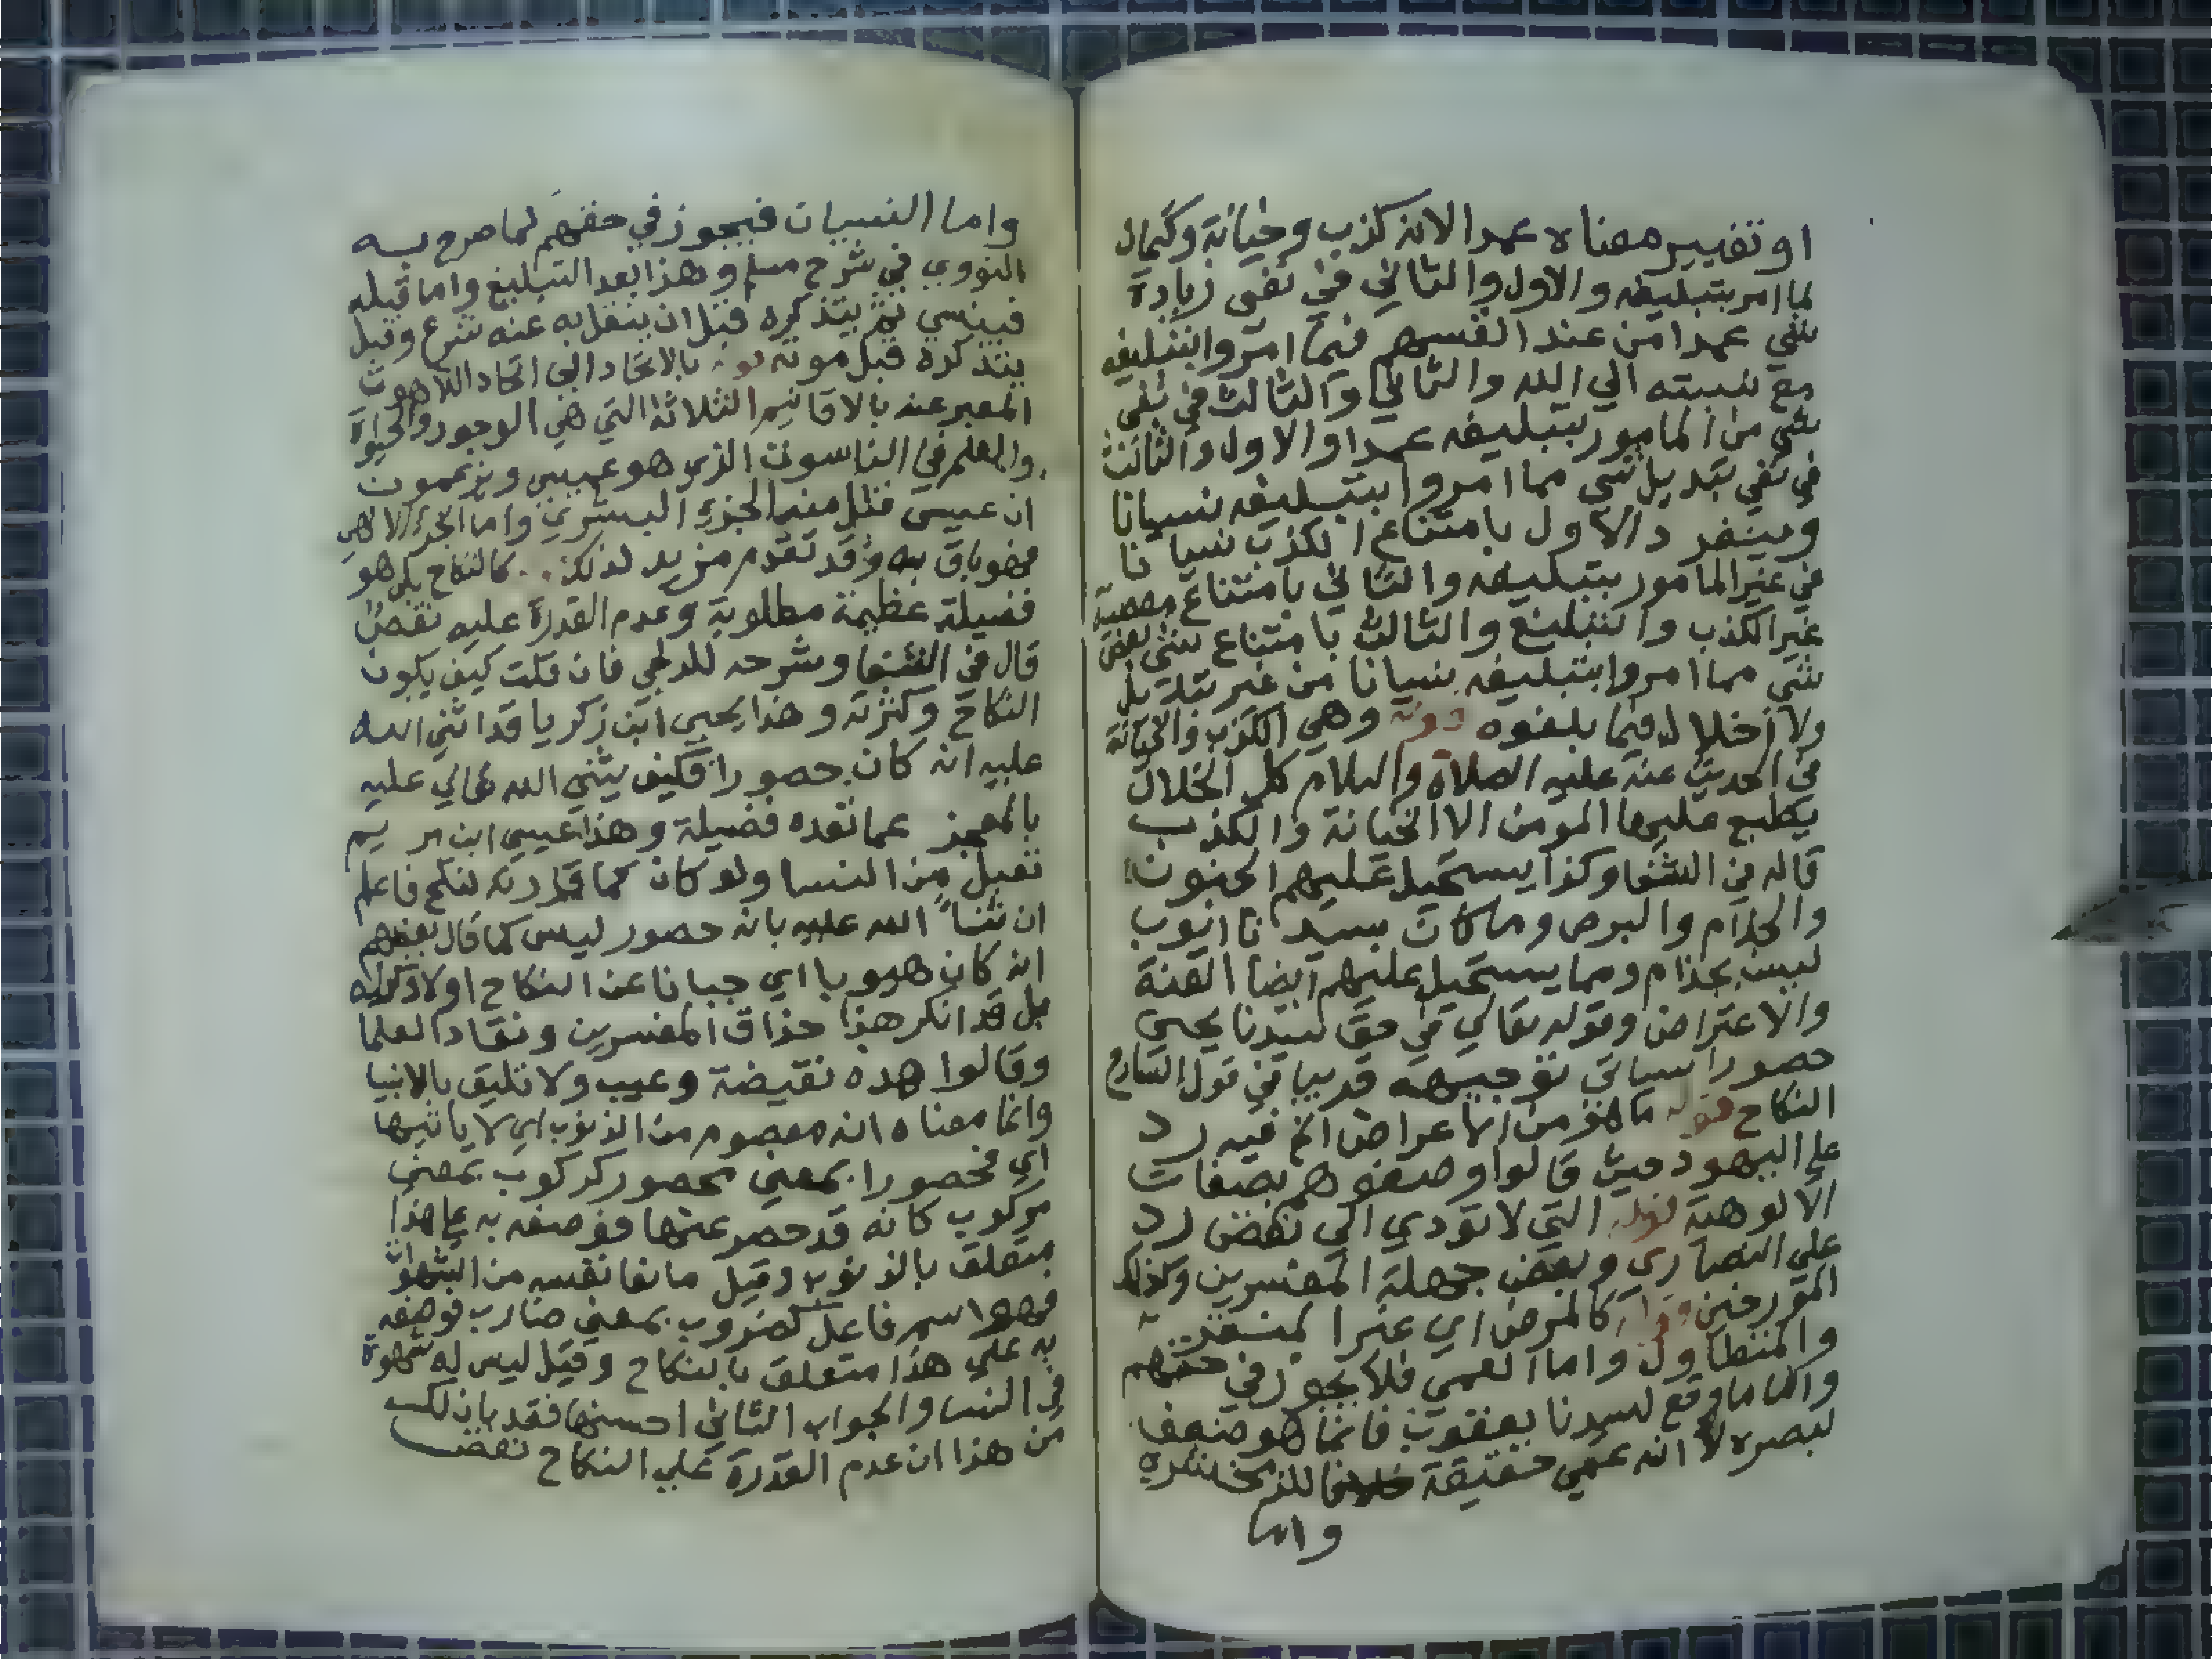 او تغيير معناه عمدا لانه كذب وخيانة وكتمال
لما امر بتبليغه والاول والثاني في نفى زيادة
شي عمدا من عند انفسهم فيما امروا بتبليغه
مع نسبته الي الله والثاني والثالث في نفى
شي من المامور بتبليغه عمدا والاول والثالث
في نفي تبديل شي مما امروا بتبليغه نسيانا
وينفرد الاول بامتناع الكذب نسيانا
في غير المامور بتبليغه والثاني بامتناع معصية
غير الكذب والتبليغ والثالث بامتناع شي بعض
شي مما امروا بتبليغه نسيانا من غير تبديل
ولا اخلال فيما بلغوه قوله وهي الكذب والخيانة
في الحديث عنه عليه الصلاة والسلام كل الخلال
يطبع عليها المومن الا الخيانة والكذب
قاله في الشفا وكذا يستحيل عليهم الجنون
والجذام والبرص وما كان بسيدنا ايوب
ليس بجذام ومما يستحيل عليهم ايضا العنة
والاعتراض وقوله تعالي في حق سيدنا يحيى
حصورا سياتي توجيهه قريبا في قول الشارح
النكاح قوله ما هو من الاعراض الخ فيه رد
علي اليهود حيث قالوا وصفوهم بصفات
الالوهية قوله التي لا تودي الي نقص رد
علي النصاري وبعض جهلة المفسرين وكذلك
المورخين قوله كالمرض اي غير المنفر
والمتطاول واما العمي فلا يجوز في حقهم
واما ما وقع لسيدنا يعقوب فانما هو ضعف
لبصره لا انه عمي حقيقة خلافا للزمخشري
واما
واما النسيان فيجوز في حقهم لما صرح به
النووي في شرح مسلم وهذا بعد التبليغ واما قبله
فينسي ثم يتذكره قبل ان ينقل به عنه شرع وقبل
يتذكره قبل موته قوله بالاتحاد الي اتحاد اللاهوت
المعبر عنه بالاقانيم الثلاثة التي هي الوجود والحيواة
والعلم في الناسوت الذي هو عيسي ويزعمون
ان عيسى قتل منه الجزء البشري واما الجزء الالاهي
فهو باق به وقد تقدم مزيد لذلك كالنكاح بل هو
فضيلة عظيمة مطلوبة وعدم القدرة عليه نقص
قال في الشفا وشرحه للدلجي فان قلت كيف يكون
النكاح وكثرته وهذا يحيي ابن زكريا قد اثني الله
عليه انه كان حصورا فكيف يثني الله تعالي عليه
بالعجز عما تعده فضيلة وهذا عيسي ابن مريم
تقبل من النسا ولو كان كما قدرته لنكح فاعلم
ان ثناً الله عليه بانه حصور ليس كما قال بعضهم
انه كان هيوبا اي جبانا عن النكاح اولاذكرله
بل قد انكر هذا حذاق المفسرين ونقاد العلما
وقالوا هده نقيضة وعيب ولا تليق بالانبيا
وانما معناه انه معصوم من الذنوب اي لا ياتيها
اي محصورا بمعني محصور كركوب بمعني
مركوب كانه قد حصر عنها فوصفه به علي هذا
متعلق بالذنوب وقيل مانعا نفسه من الشهوات
فهو اسم فاعل كضروب بمعني ضارب فوصفه
به علي هذا متعلق بالنكاح وقيل ليس له شهوة
في النسا والجواب الثاني احسنها فقد بان لك
من هذا ان عدم القدرة علي النكاح نقص